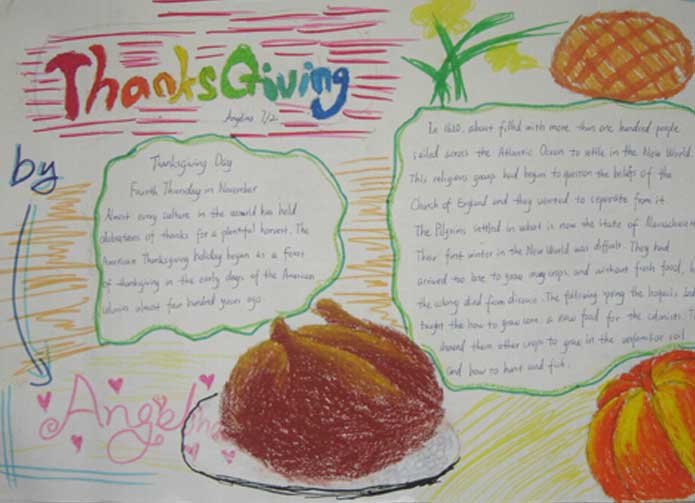 ThanksGiving
Angelina 7/2
by
Angelina
Thanksgiving Day
Fourth Thursday in November
Almost every culture in the world has held
celebrations of thanks for a plentiful harvest. The
American Thanksgiving holiday began as a feast
of thanksgiving in the early days of the American
colonies almost four hundred years ago.
In 1620, about filled with more than one hundred people
sailed across the Atlantic Ocean to settle in the New World.
This religious group had begun to question the beliefs of the
Church of England and they wanted to separate from it.
The Pilgrims settled in what is now the state of
Their first winter in the New World was difficult. They had
arrived too late to grow many crops, and without fresh food,
the colony died from disease. The following spring the
taught the how to grow corn, a new food for the colonists.
them other crops to grow in the unfamiliar soil
and how to hunt and fish.